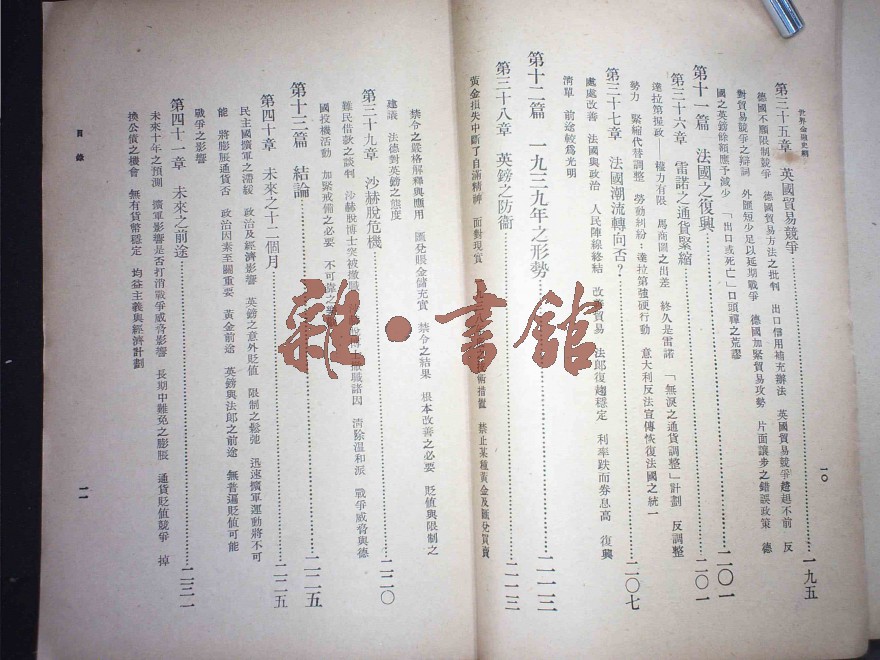 世界金融史綱
一〇
第三十五章 英國貿易競爭……一九五
德國不願限制競爭 德國貿易方法之批判 出口信用補充辦法 英國貿易競爭趑趄不前 反
對貿易競爭之辯詞 外匯短少足以延期戰爭 德國加緊貿易攻勢 片面讓步之錯誤政策 德
國之英鎊餘額應予減少 「出口或死亡」口頭禪之荒謬
第十一篇 法國之復興……二〇一
第三十六章 雷諾之通貨緊縮……二〇一
達拉第握政——權力有限 馬商圖之出差 終久是雷諾 「無淚之通貨調整」計劃 反調整
勢力 緊縮代替調整 勞動糾紛：達拉第強硬行動 意大利反法宣傳恢復法國之統一
第三十七章 法國潮流轉向否？……二〇七
處處改善 法國與政治 人民陣線終結 改善貿易 法郎復趨穩定 利率跌而券息高 復興
清單 前途較為光明
第十二篇 一九三九年之形勢……二一三
第三十八章 英鎊之防衛……二一三
黃金損失中斷了自滿精神 面對現實 技術措置 禁止某種黃金及匯兌買賣
禁令之嚴格解釋與應用 匯兌賬金儲充實 禁令之結果 根本改善之必要 貶值與限制之
建議 法德對英鎊之態度
第三十九章 沙赫脫危機……二二〇
難民借款之談判 沙赫脫博士突被撤職 撤職諸因 清除溫和派 戰爭威脅與德
國投機活動 加緊戒備之必要 不可靠之
第十三篇 結論……二二五
第四十章 未來之十二個月……二二五
民主國擴軍之滯緩 政治及經濟影響 英鎊之意外貶值 限制之鬆弛 迅速擴軍運動將不可
能 將膨脹通貨否 政治因素至關重要 黃金前途 英鎊與法郎之前途 無普遍貶值可能
戰爭之影響
第四十一章 未來之前途……二三一
未來十年之預測 擴軍影響是否打消戰爭威脅影響 長期中難免之膨脹 通貨貶值競爭 掉
換公債之機會 無有貨幣穩定 均益主義與經濟計劃
目錄
一一
雜·書館